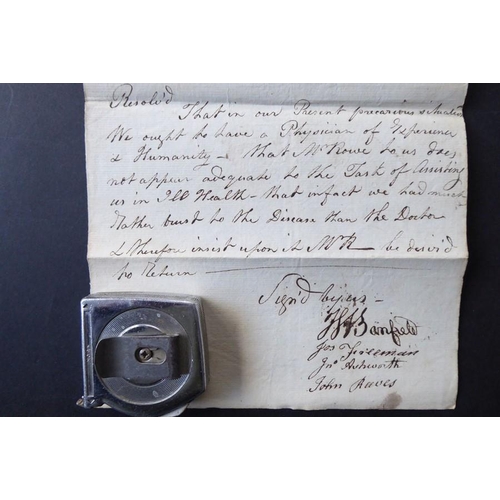 Resolv'd
That in our Present precarious situation
We ought to have a Physician of Experience
& Humanity – that Mr Rowe to us does
not appear adequate to the Task of Assisting
us in Ill Health – that infact we had much
Rather trust to the Disease than the Doctor
& therefore insist upon it Mr R be desir'd
to Return
Sign'd by us –
Banfield
Jos Freeman
Jno Ashworth
John Reeves